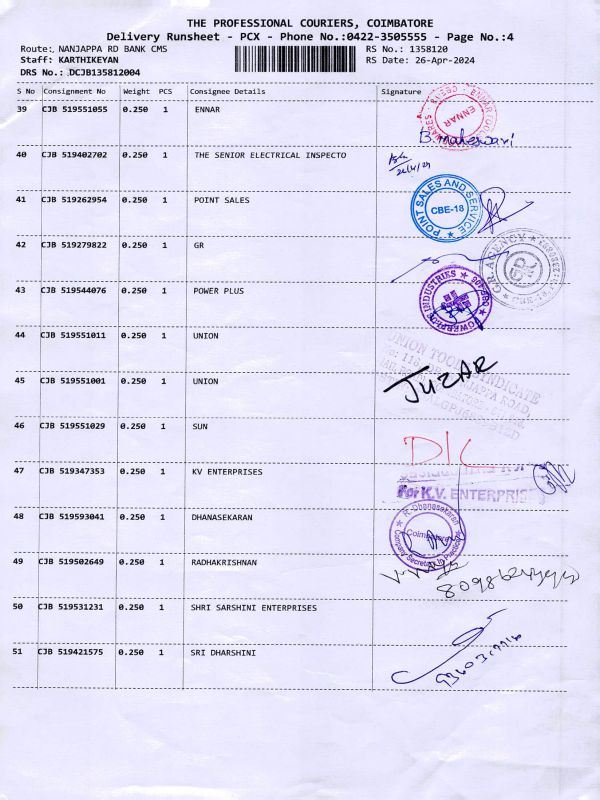 THE PROFESSIONAL COURIERS, COIMBATORE
Delivery Runsheet - PCX - Phone No.:0422-3505555 - Page No.:4
Route: NANJAPPA RD BANK CMS RS No.: 1358120
Staff: KARTHIKEYAN RS Date: 26-Apr-2024
DRS No.: DCJB135812004
S No Consignment No Weight PCS Consignee Details Signature
39 CJB 519551055 0.250 1 ENNAR
ENNAR
B. Maheswari
40 CJB 519402702 0.250 1 THE SENIOR ELECTRICAL INSPECTO
26/4/24
41 CJB 519262954 0.250 1 POINT SALES
POINT SALES AND SERVICE
CBE-18
42 CJB 519279822 0.250 1 GR
G.R. AGENCY
GR
43 CJB 519544076 0.250 1 POWER PLUS
INDUSTRIES
44 CJB 519551011 0.250 1 UNION
UNION TOOLS SYNDICATE
45 CJB 519551001 0.250 1 UNION
JUZAR
46 CJB 519551029 0.250 1 SUN
D/C
47 CJB 519347353 0.250 1 KV ENTERPRISES
For K.V. ENTERPRISES
48 CJB 519593041 0.250 1 DHANASEKARAN
R. Dhanasekaran
Coimbatore
Company Secretary in Practice
49 CJB 519502649 0.250 1 RADHAKRISHNAN
50 CJB 519531231 0.250 1 SHRI SARSHINI ENTERPRISES
51 CJB 519421575 0.250 1 SRI DHARSHINI